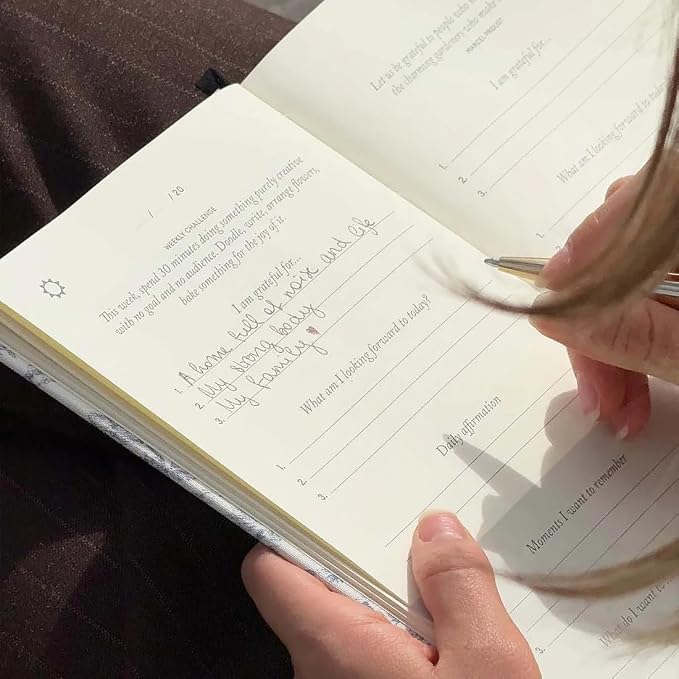 / / 20
WEEKLY CHALLENGE
This week, spend 30 minutes doing something purely creative
with no goal and no audience. Doodle, write, arrange flowers,
bake something for the joy of it.
I am grateful for...
1. A home full of noix and life
2. My strong body
3. My family
What am I looking forward to today?
1.
2.
3.
Daily affirmation
Moments I want to remember
What do I want to
Let us be grateful to people who
the charming gardeners who make
MARCEL PROUST
I am grateful for...
1.
2.
3.
What am I looking forward to today?